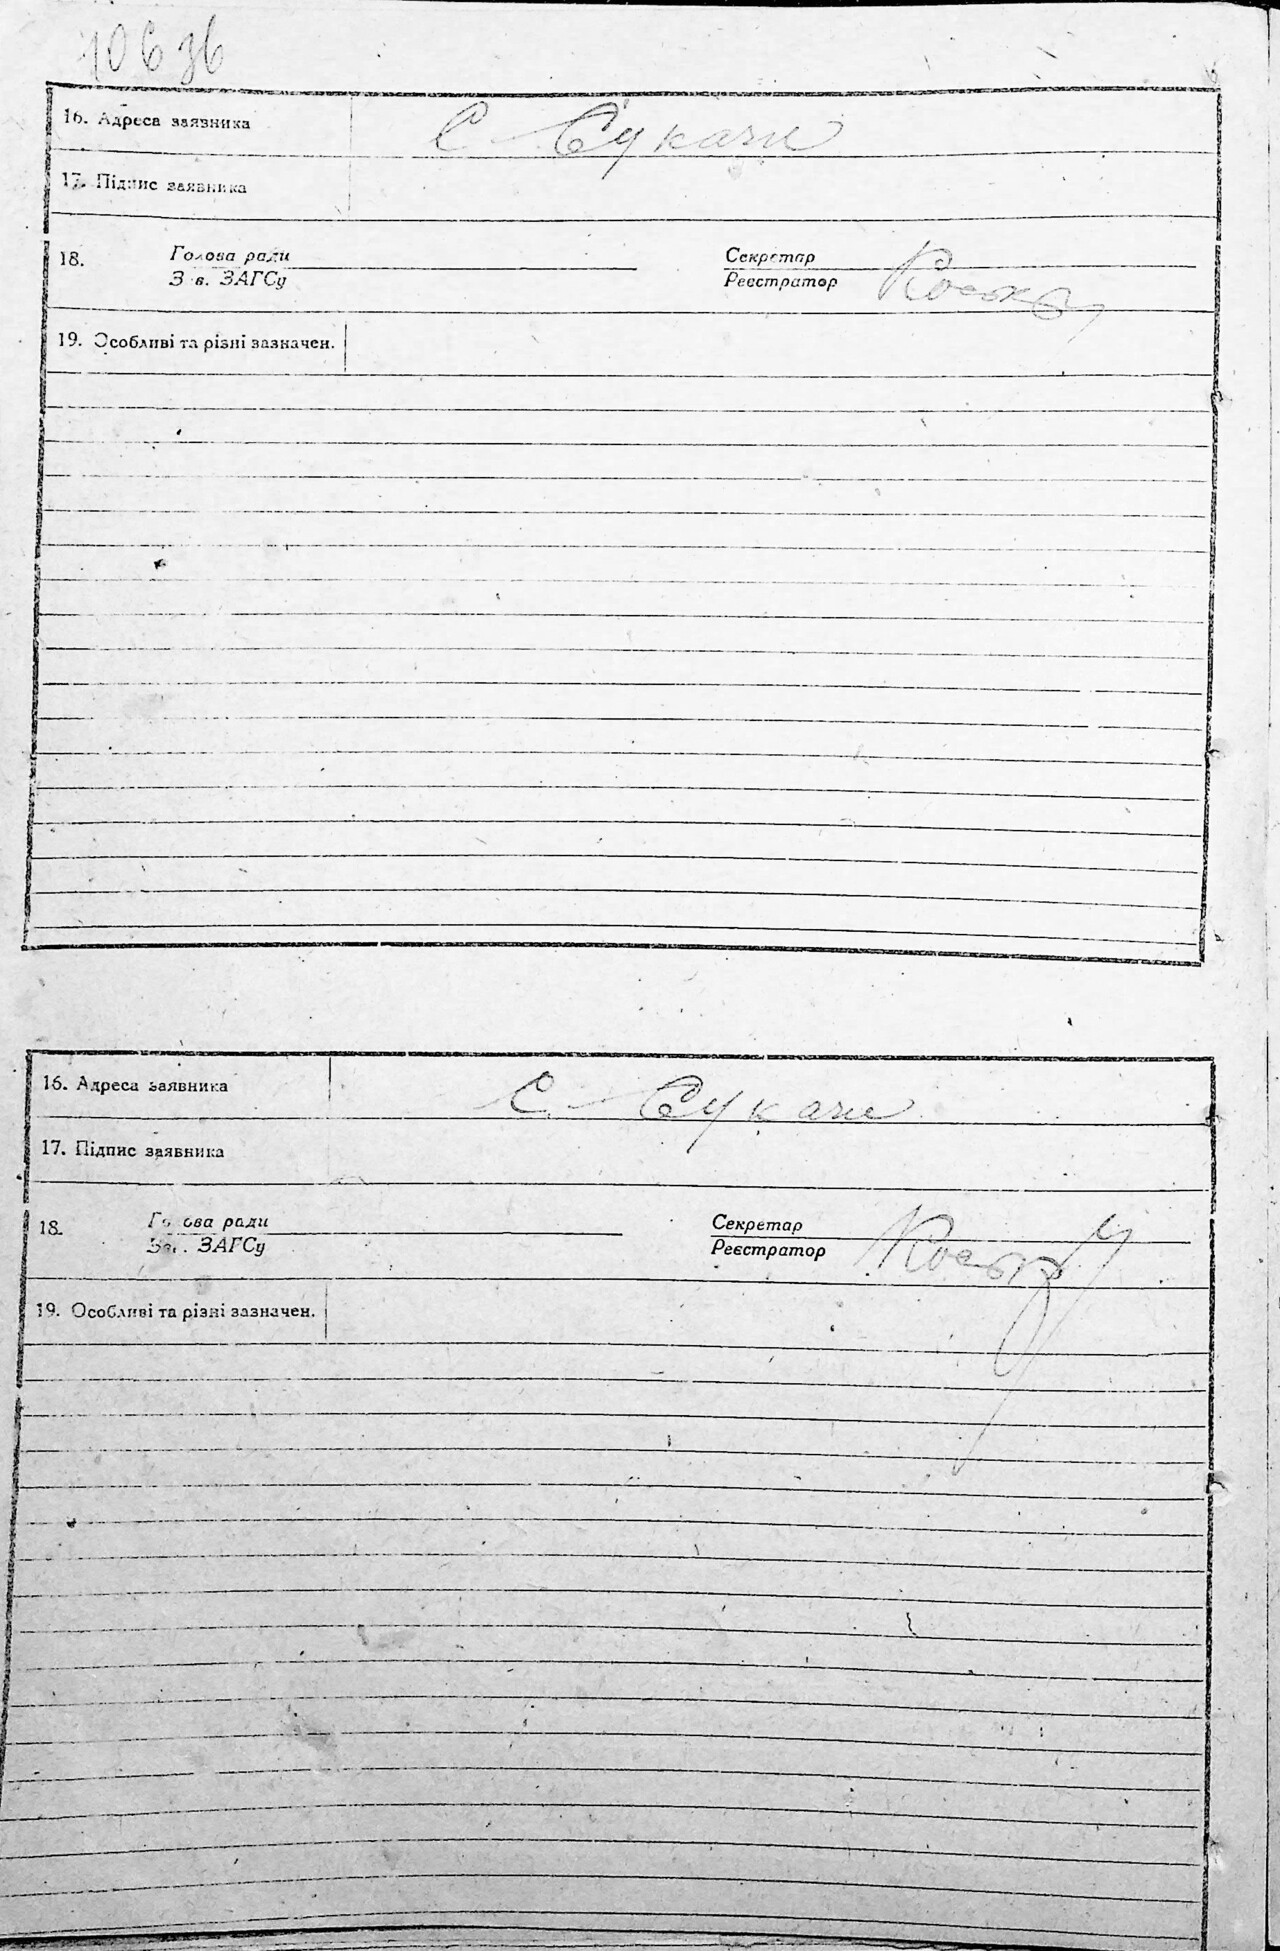 10636
16. Адреса заявника С Сукачи
17. Підпис заявника
18. Голова ради Секретар
Зав. ЗАГСу Реєстратор
19. Особливі та різні зазначен.
16. Адреса заявника С. Сукачи
17. Підпис заявника
18. Голова ради Секретар
Зав. ЗАГСу Реєстратор
19. Особливі та різні зазначен.